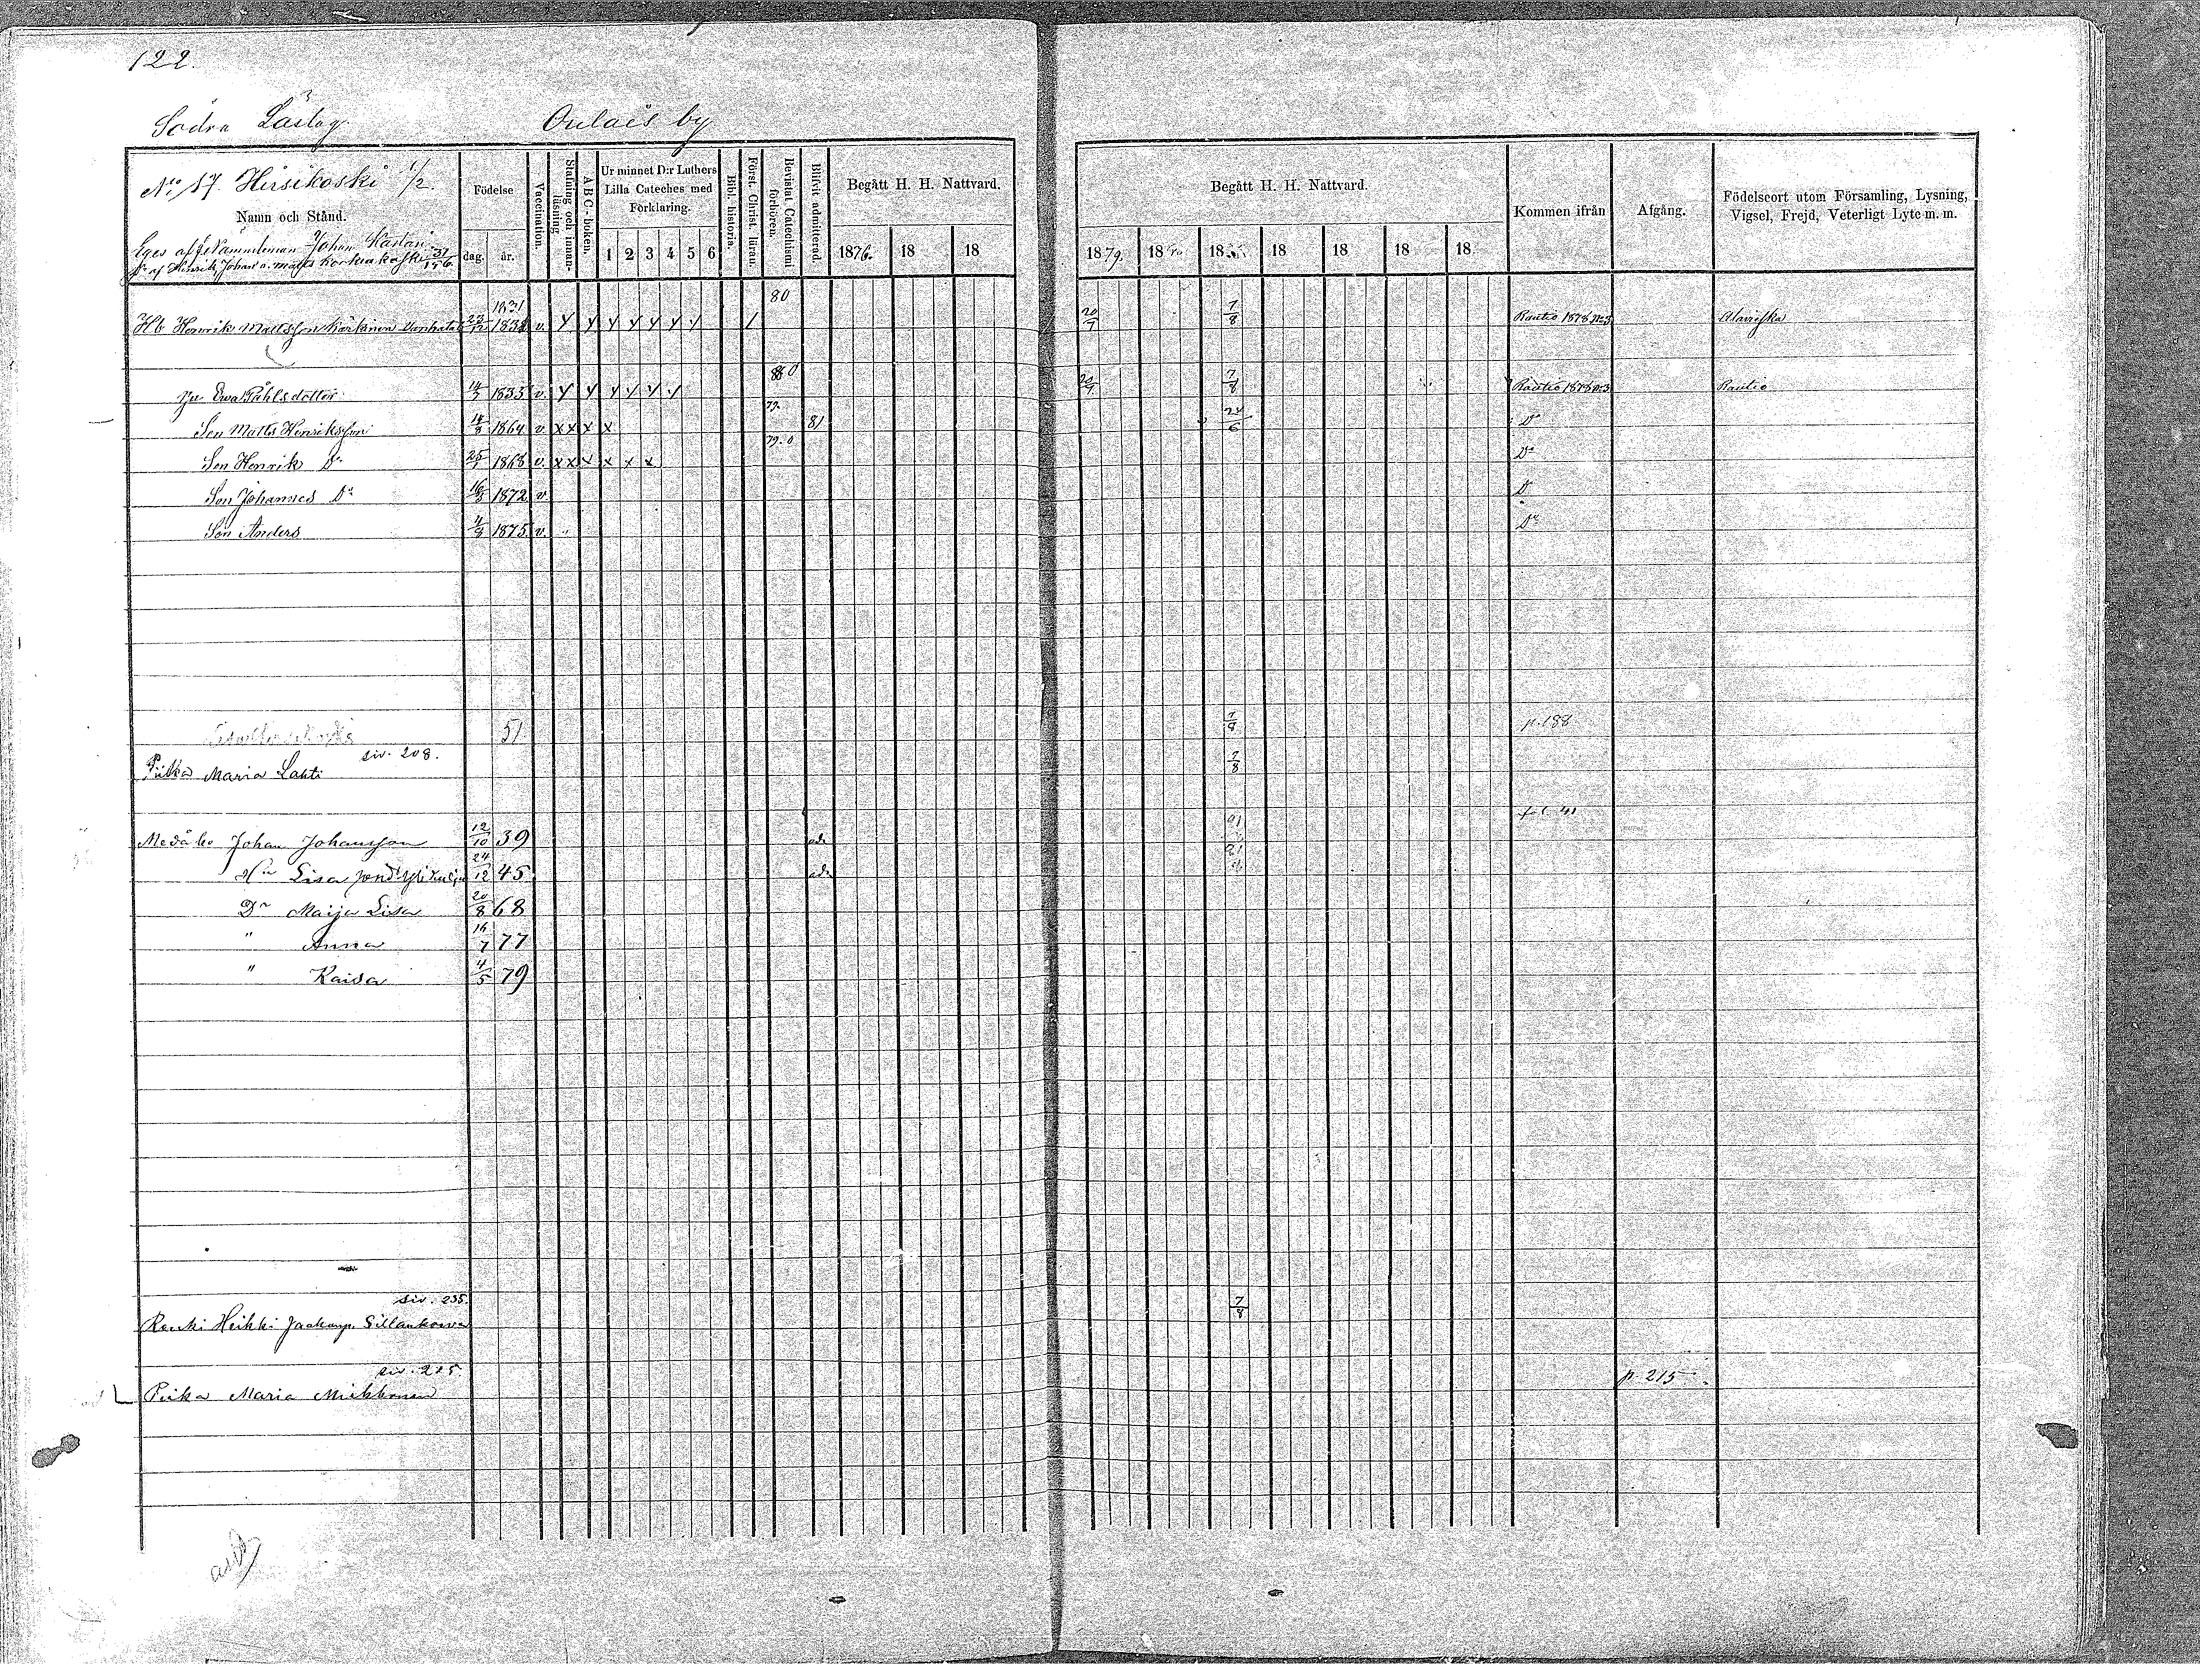 122.
Södra Läslag. Oulais by
No 17. Hirsikoski 1/2.
Namn och Stånd.
Födelse
dag. år.
Vaccination.
Stafning och innanläsning
A B C-boken.
Ur minnet D:r Luthers Lilla Cateches med Förklaring.
1 2 3 4 5 6
Bibl. historia.
Först. Christ. läran.
Bevistat Catechismi förhören.
Blifvit admitterad.
Begått H. H. Nattvard.
1876. 18 18
Begått H. H. Nattvard.
1879. 18 18 18 18 18 18
Kommen ifrån
Afgång.
Födelseort utom Församling, Lysning, Vigsel, Frejd, Veterligt Lyte m. m.
Eges af Johan
Do af Henrik, Johan o. Matts
1831 80
Hb Henrik Mattsson 23/12 v. 20/7 7/8 Rautio 1878 No 3 Alavieska
Ewa Påhlsdotter 1835 v. 7/8 Rautio 1878 No 3 Rautio
79.
Son Matts Henriksson 1864 v. x x x x 81 24/6 Do
79.
Son Henrik Do 25/1 1868 v. x x x x x x Do
Son Johannes Do 16/3 1872 v. D
Son Anders 4/3 1875 v. Do
51 7/8 p. 188
siv. 208.
Piika Maria Lahti 7/8
fol 41
Johan Johansson 12/10 39
Lisa 24/12 45
Dr Maija Lisa 20/8 68
" Anna 77
" Kaisa 4/5 79
siv. 235.
Renki Heikki 7/8
siv. 215
Piika Maria Mikkonen p. 215